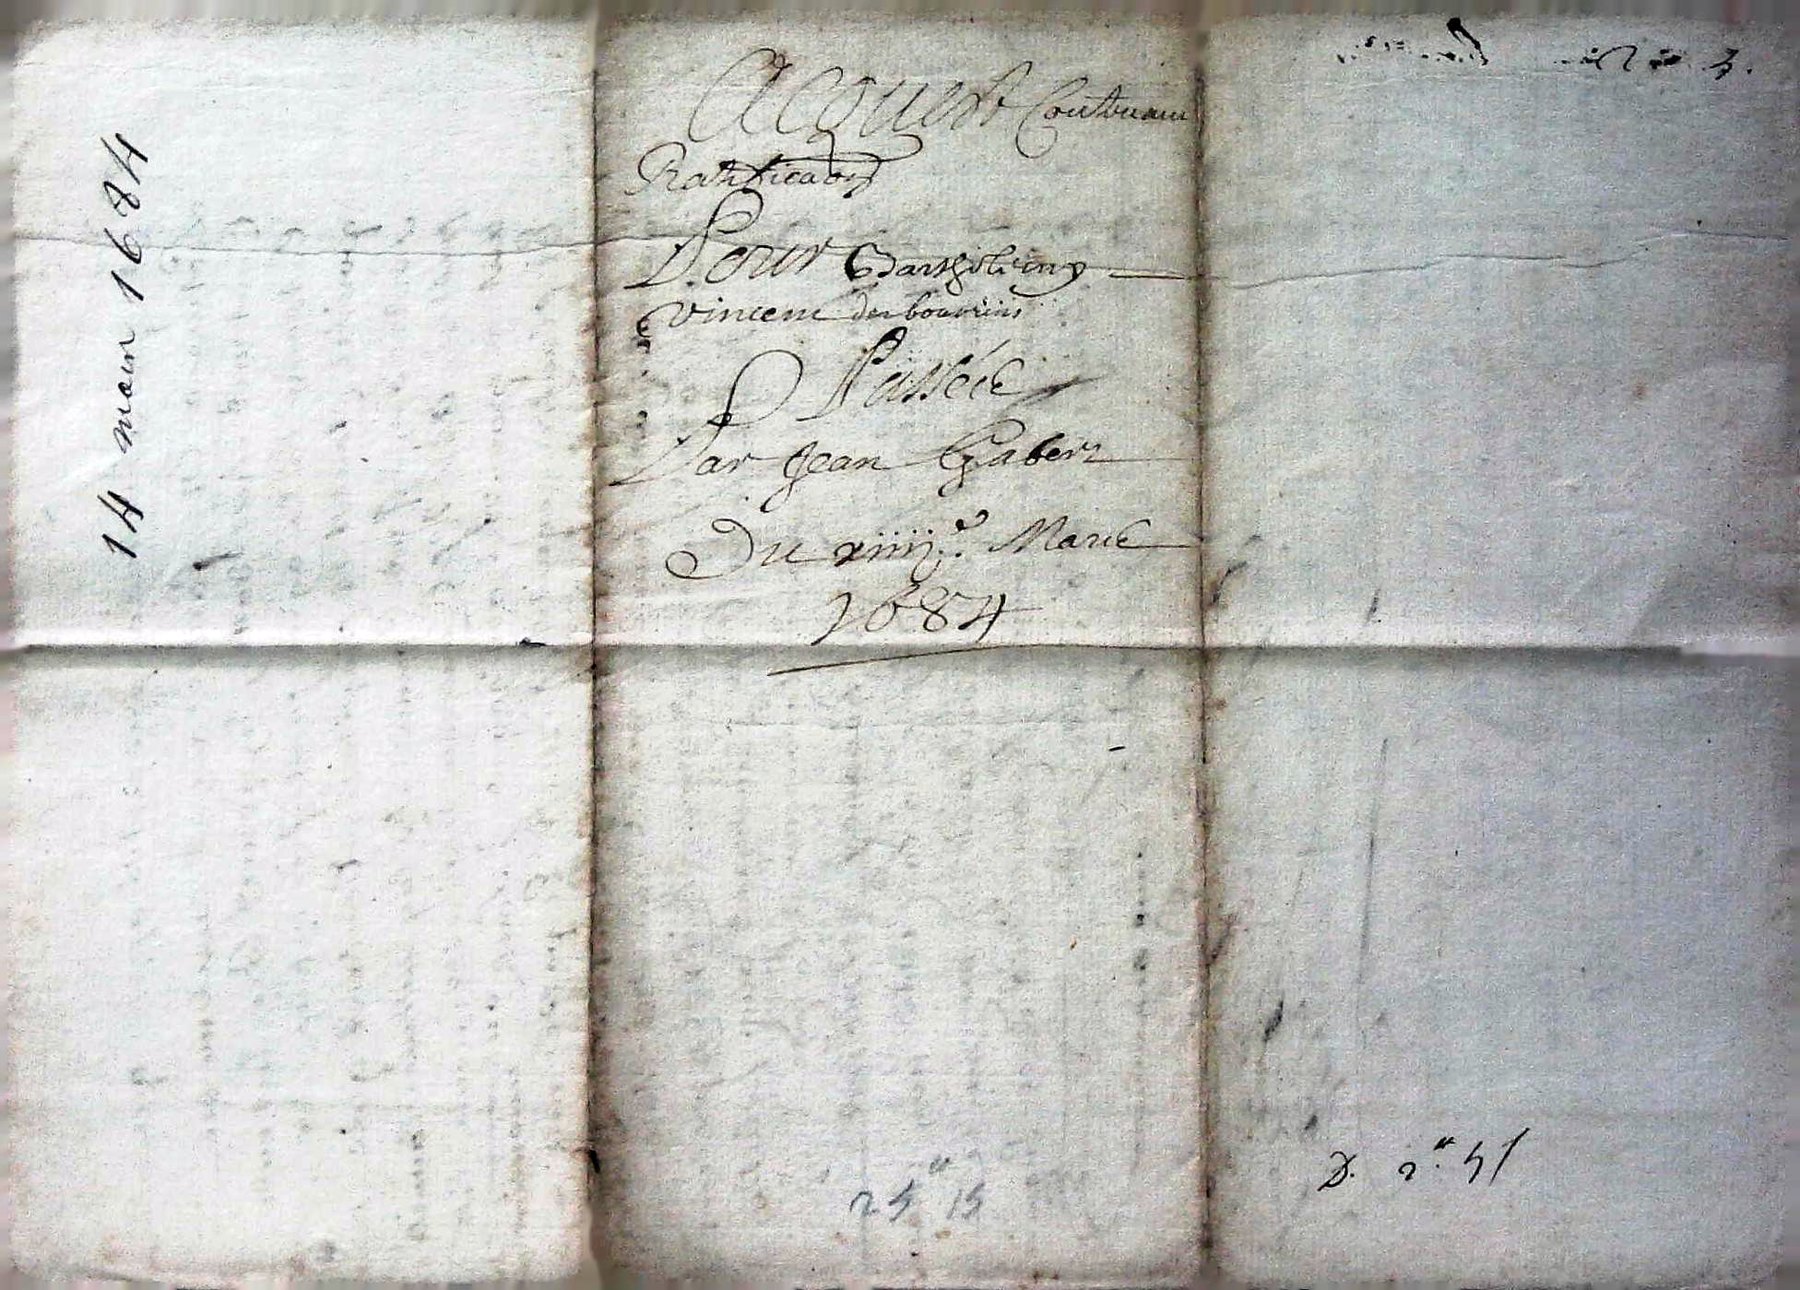 14 mars 1684
Acquest Contenant
Ratificaon
Pour Barthelemy
Vincent des bouveins
Passée
Par Jean Gabert
Du xiiije. Mars
1684
25 15
D. 2. 4 s